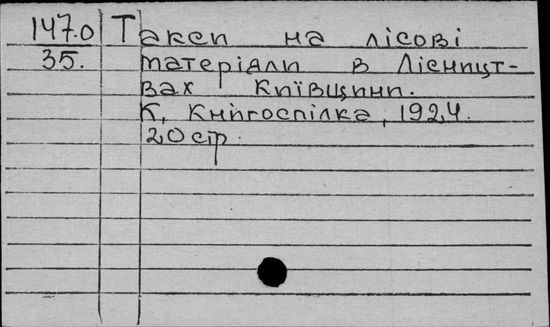 147.0 Такси на лісові
35. матеріяли в Лісницт-
вах Київщини.
К, Книгоспілка, 1924.
20 стр.